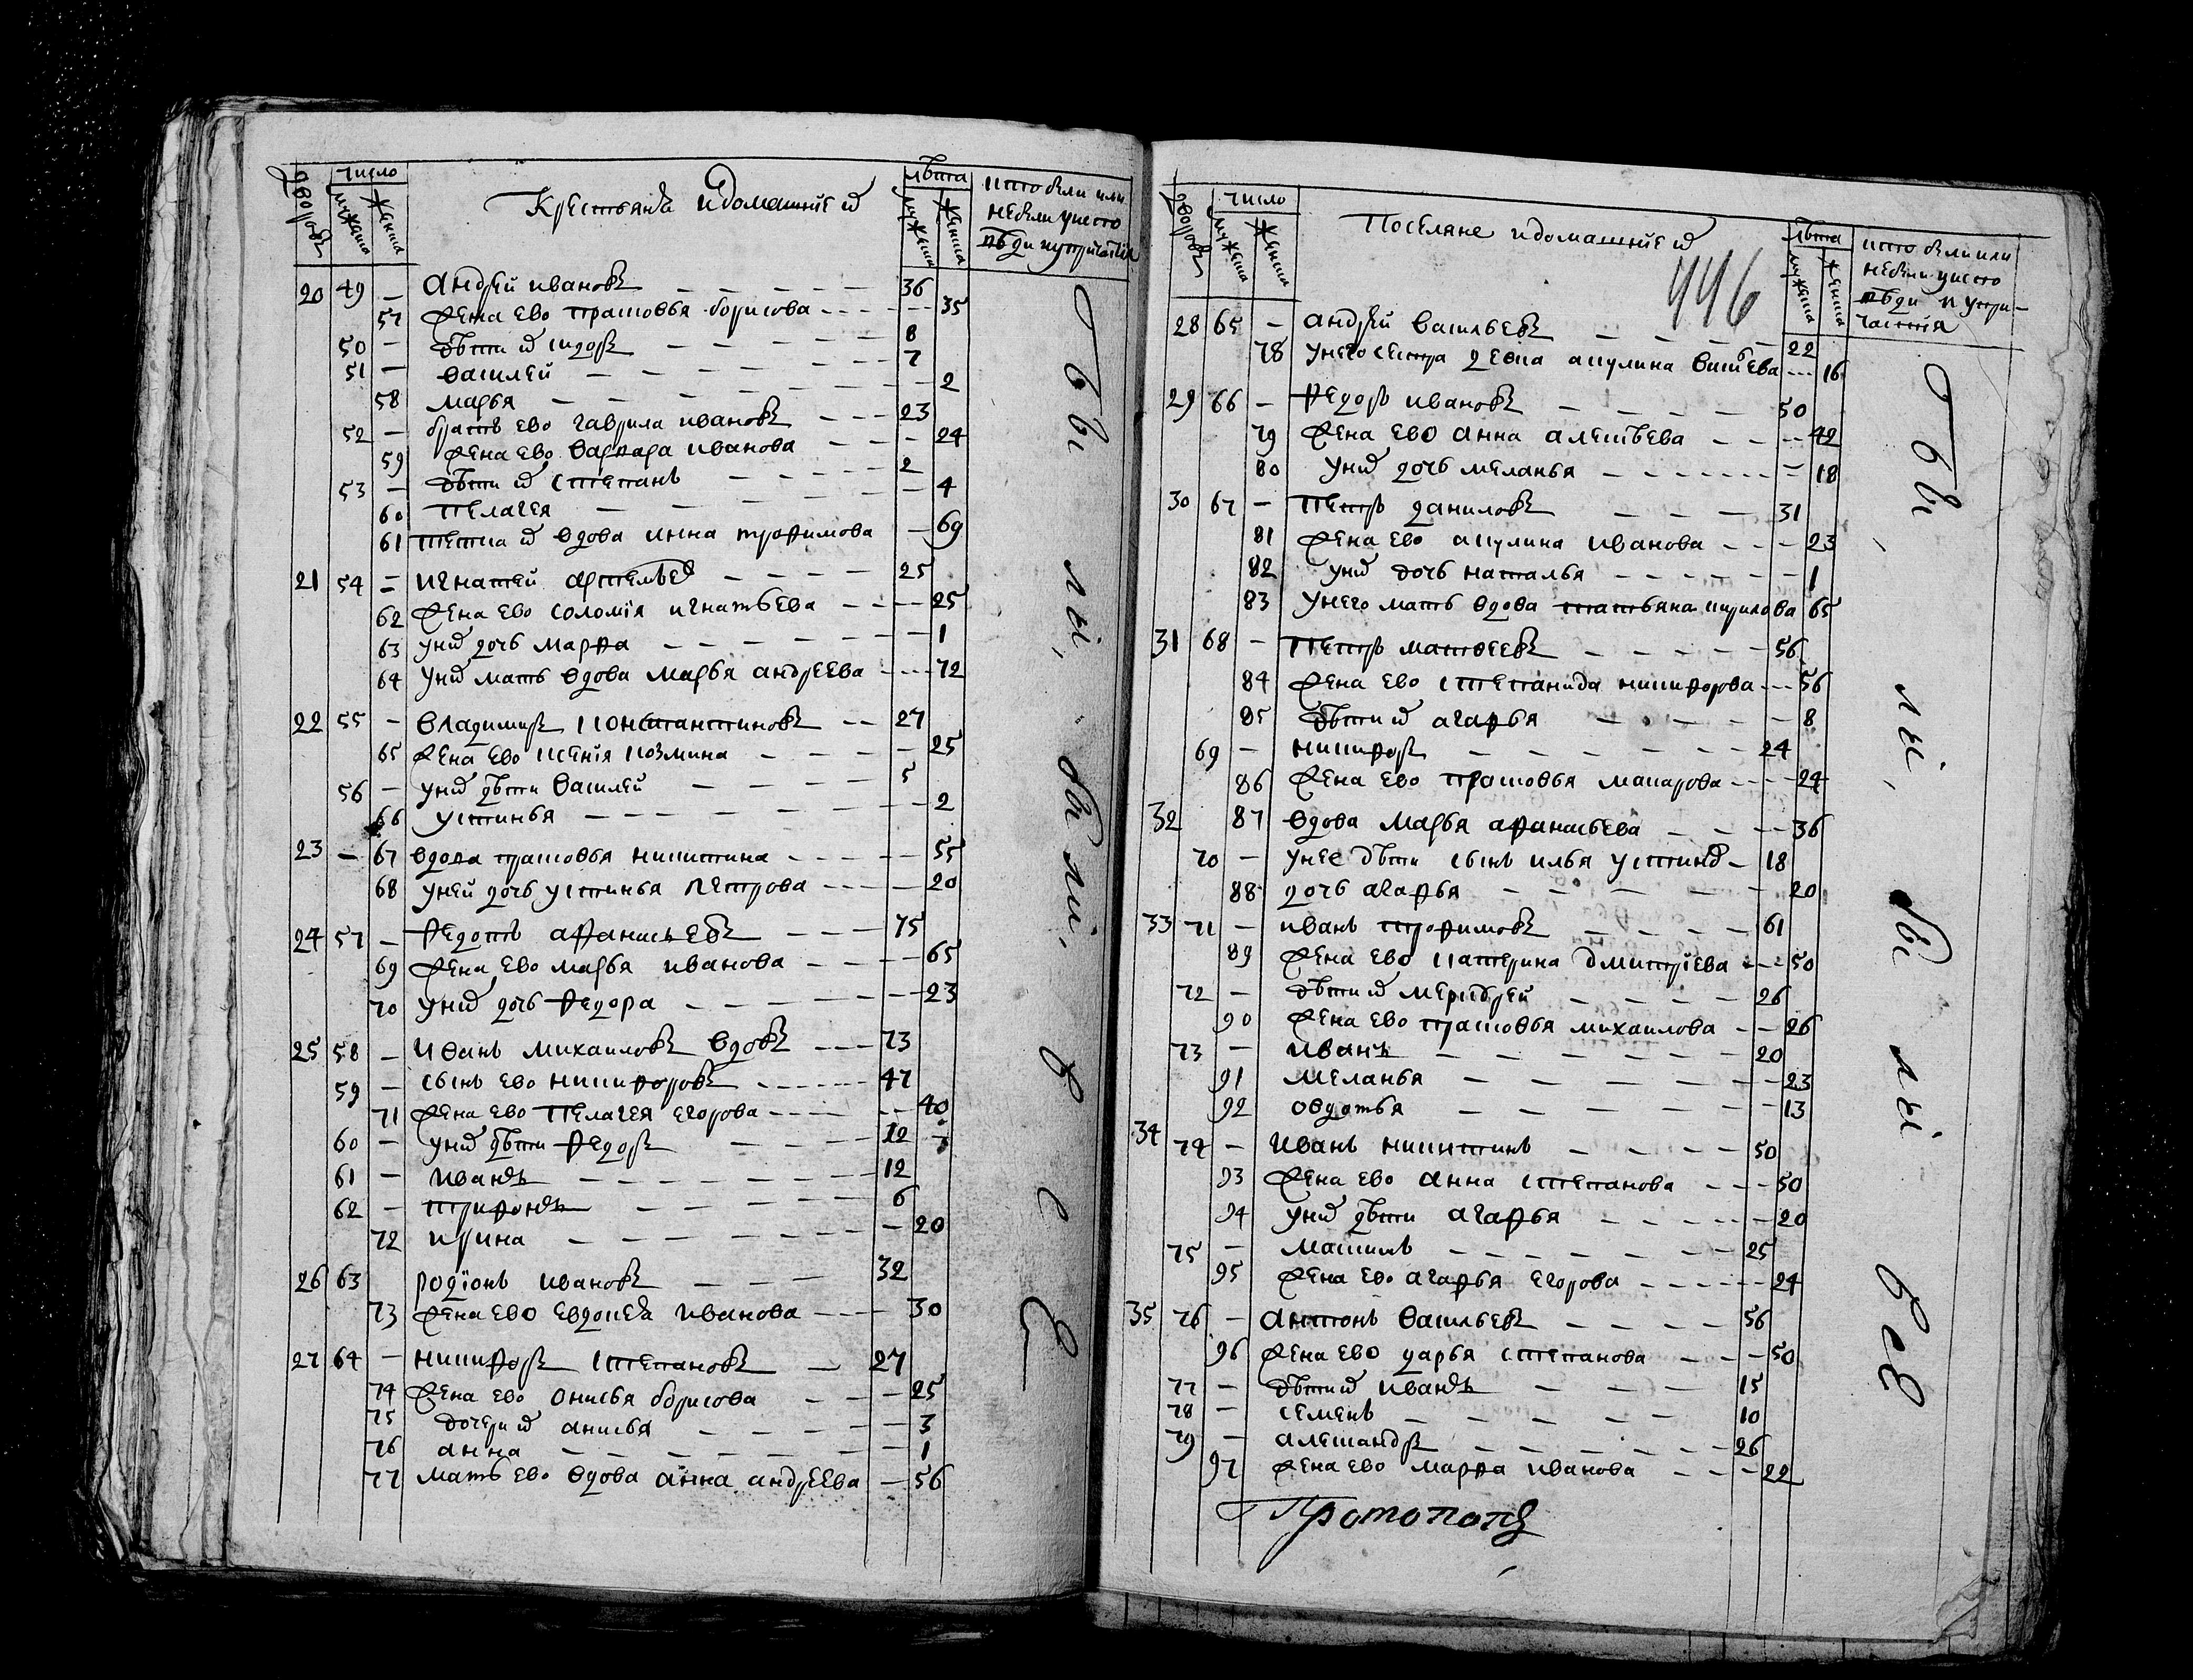 дворовъ число мужеска женска Крестьянъ и домашние их лѣта мужеска женска кто были или не были у исповѣди и у причастия
20 49 – Андрей Ивановъ – – – 36
57 жена ево Прасковья Борисова – – – 35
50 – дѣти их Сидоръ – – – 8
51 – Василей – – – 7
58 Марья – – – 2
52 – братъ ево Гаврила Ивановъ – – – 23
59 жена ево Варвара Иванова – – – 24
53 – дѣти их Степанъ – – – 2
60 Пелагея – – – 4
61 тетка их вдова Инна Трофимова – 69
21 54 – Игнатей Артемьев – – – 25
62 жена ево Соломiя Игнатьева – – – 25
63 у них дочь Марфа – – – 1
64 у них мать вдова Марья Андреева – – – 72
22 55 – Владимиръ Константиновъ – – 27
65 жена ево Ксенiя Козмина – – – 25
56 – у них дѣти Василей – – – 5
66 Устинья – – – 2
23 – 67 вдова Прасковья Никитина – – – 55
68 у ней дочь Устинья Петрова – – – 20
24 57 – Федотъ Афанасьевъ – – – 75
69 жена ево Марья Иванова – – – 65
70 у них дочь Федора – – – 23
25 58 – Иванъ Михаиловъ вдовъ – – – 73
59 – сынъ ево Никифоровъ – – – 47
71 жена ево Пелагея Егорова – – – 40
60 – у них дѣти Федоръ – – – 12
61 – Иванъ – – – 12
62 – Трифонъ – – – 6
72 Ирина – – – 20
26 63 Родiонъ Ивановъ – – – 32
73 жена ево Евдокея Иванова – – – 30
27 64 – Никифоръ Степановъ – 27
74 жена ево Онисья Борисова – – – 25
75 дочери их Анисья – – – 3
76 Анна – – – 1
77 мать ево вдова Анна Андреева – 56
бы ли, бы ли, все
дворовъ число мужеска женска Поселяне и домашние их лѣта мужеска женска кто были или не были у исповѣди и у причастия
446
28 65 – Андрей Васильевъ – – – 22
78 у него сестра девка Акулина Васильева – – – 16
29 66 – Федоръ Ивановъ – – – 50
79 жена ево Анна Алексѣева – – – 42
80 у них дочь Меланья – – – 18
30 67 – Петръ Даниловъ – – – 31
81 жена ево Акулина Иванова – – – 23
82 у них дочь Наталья – – – 1
83 у него мать вдова Татьяна Кирилова 65
31 68 – Петръ Матвеевъ – – – 56
84 жена ево Степанида Никифорова – – – 56
85 дѣти их Агафья – – – 8
69 – Никифоръ – – – 24
86 жена ево Прасковья Макарова – – – 24
32 87 вдова Марья Афанасьева – – – 36
70 – у нее дѣти сынъ Илья Устинов – 18
88 дочь Агафья – – – 20
33 71 – Иванъ Трофимовъ – – – 61
89 жена ево Катерина Дмитрiева – – – 50
72 – дѣти их Меркурей – – – 26
90 жена ево Прасковья Михаилова – – 26
73 – Иванъ – – – 20
91 Меланья – – – 23
92 Овдотья – – – 13
34 74 – Иванъ Никитинъ – – – 50
93 жена ево Анна Степанова – – – 50
94 у них дѣти Агафья – – – 20
75 – Максимъ – – – 25
95 жена ево Агафья Егорова – – – 24
35 76 – Антонъ Васильевъ – – – 56
96 жена ево Дарья Степанова – – – 50
77 – дѣти их Иванъ – – – 15
78 – Семенъ – – – 10
79 – Александръ – – – 26
97 жена ево Марфа Иванова – – – 22
бы ли, бы ли все
Протопопъ